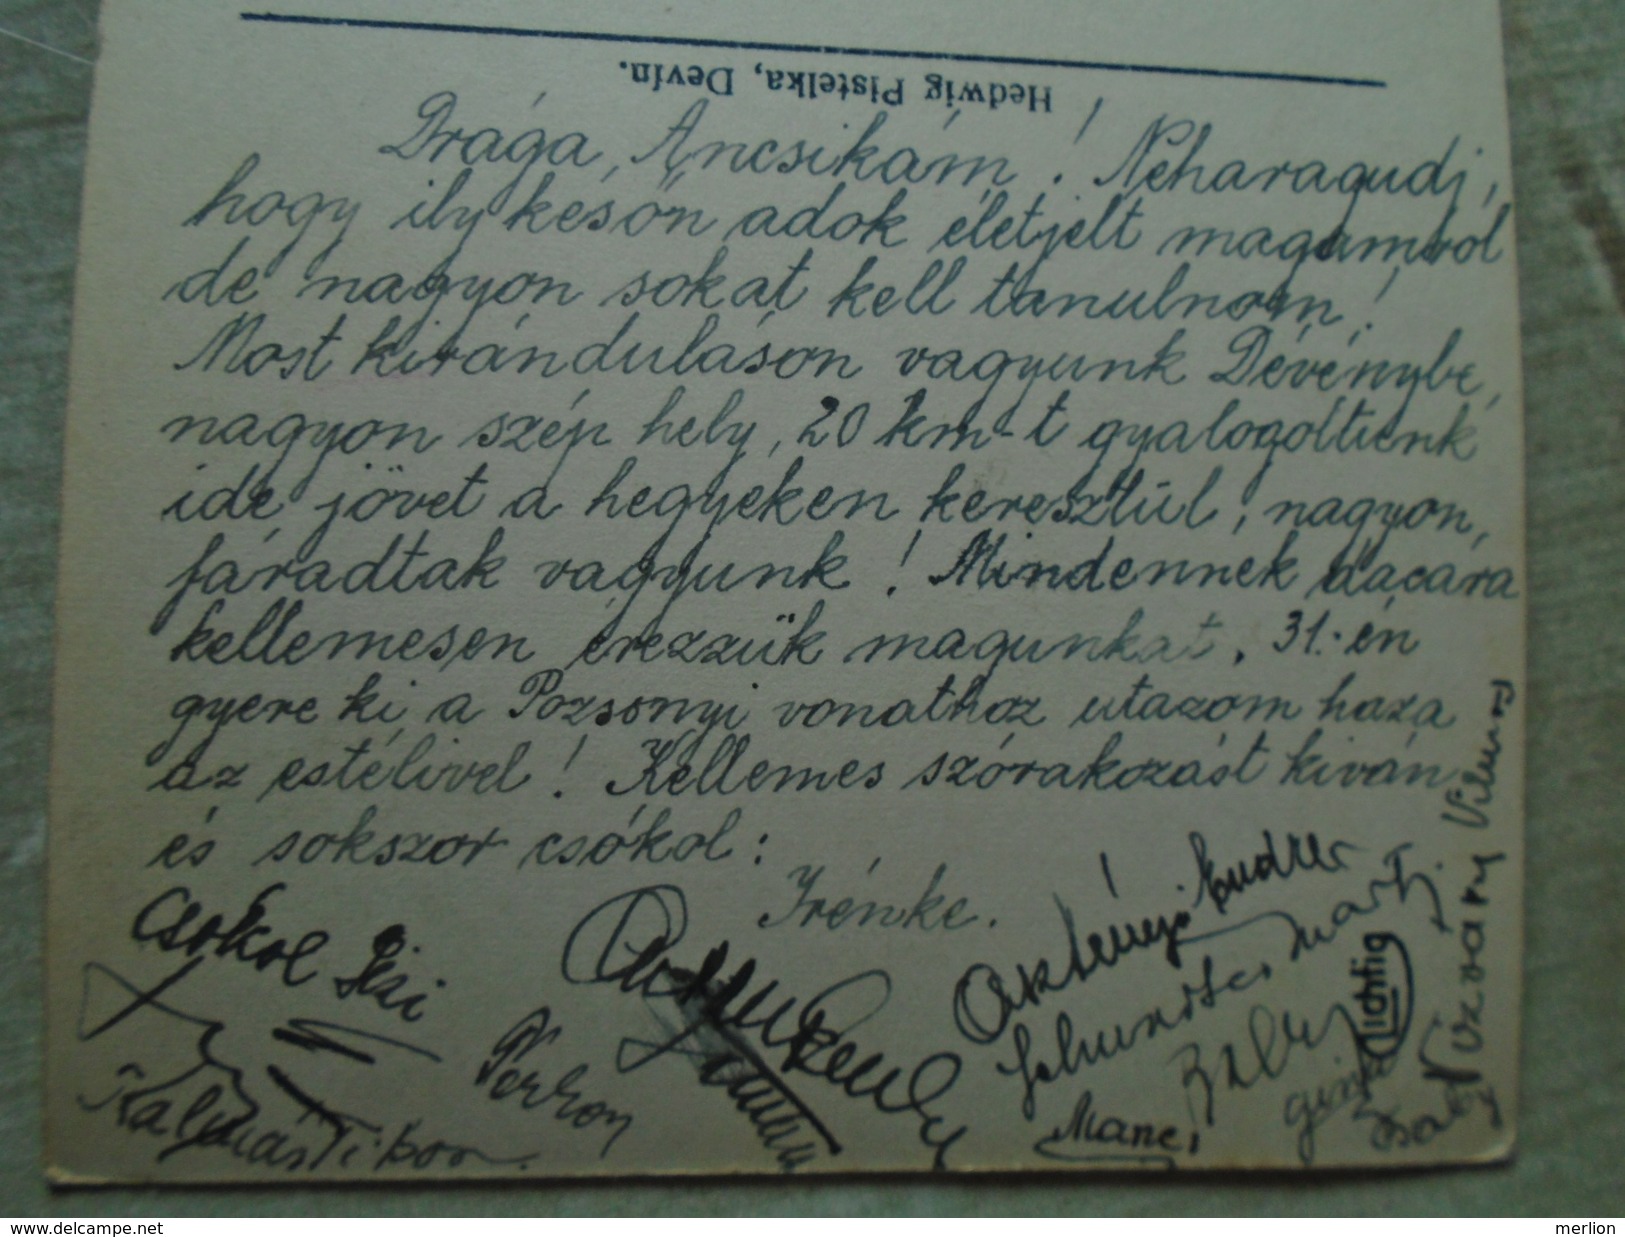 Hedwig Pistelka, Devín.
Drága Ancsikám! Neharagudj,
hogy ily késön adok életjelt magamról
de nagyon sokat kell tanulnom!
Most kiránduláson vagyunk Dévénybe,
nagyon szép hely, 20 km-t gyalogoltunk
ide jövet a hegyeken keresztül, nagyon
fáradtak vagyunk! Mindennek dacára
kellemesen érezzük magunkat. 31.-én
gyere ki a Pozsonyi vonathoz utazom haza
az estélivel! Kellemes szórakozást kiván
és sokszor csókol:
Irénke.
Csokol
Kalmár Tibor.
Manci
Lichtig
Vilmos
www.delcampe.net
merlion